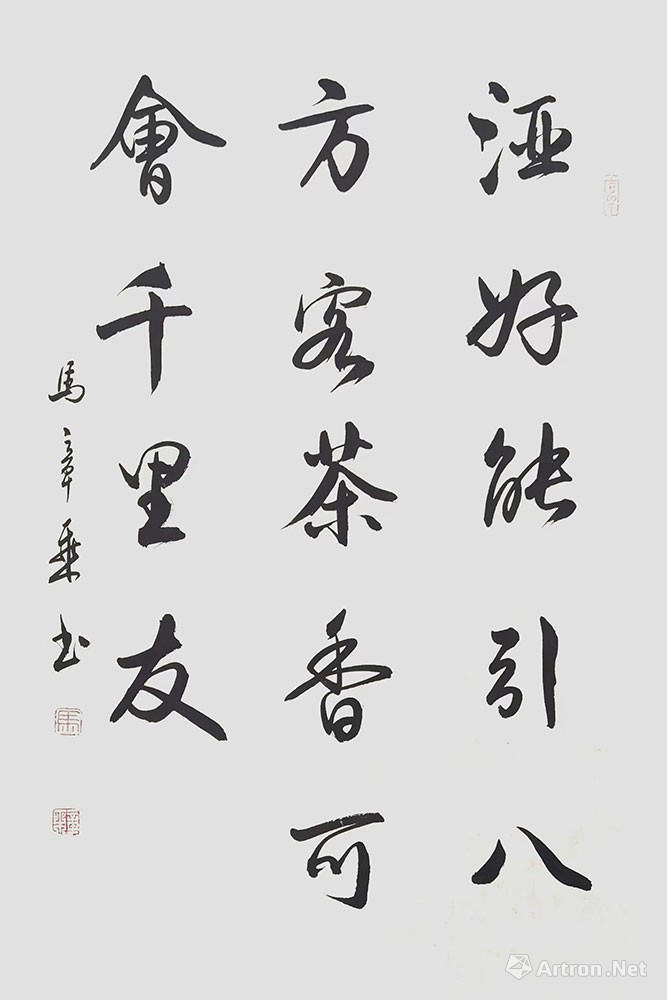 酒好能引八
方客茶香可
會千里友
馬章乘书
Artron.Net